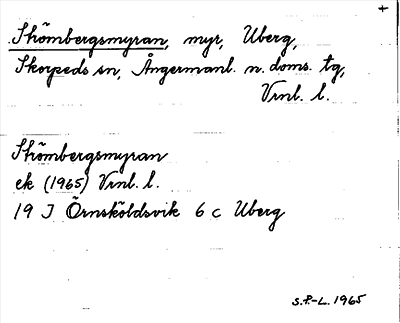 +
Skömbergsmyran, myr, Uberg,
Skorpeds sn, Ångermanl. n. doms. tg,
Vrnl. l.
Skömbergsmyran
ek (1965) Vrnl. l.
19 J Örnsköldsvik 6 c Uberg
S.P.-L. 1965